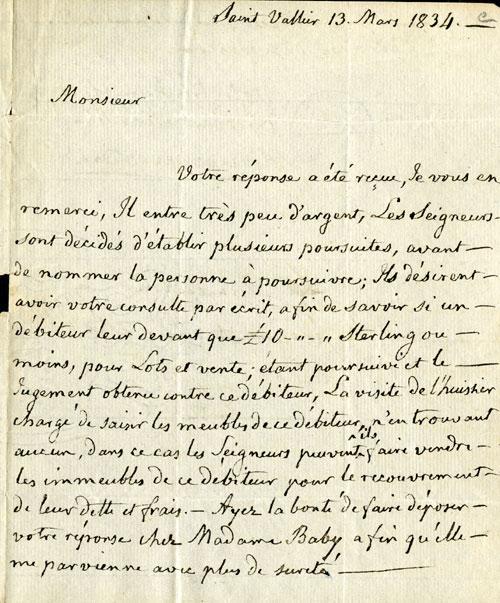 Saint Vallier 13. Mars 1834. —
Monsieur
Votre réponse a été reçue, Je vous en
remerci, Il entre très peu d'argent, Les Seigneurs-
sont décidés d'établir plusieurs poursuites, avant —
de nommer la personne à poursuivre; Ils désirent-
avoir votre consulte par écrit, afin de savoir si un —
débiteur leur devant que £10 - „ - „ Sterling ou —
moins, pour Lots et vente; étant poursuivi et le —
Jugement obtenu contre ce débiteur, La visite de l'huissier
chargé de saisir les meubles de ce débiteur, n'en trouvant
aucun, dans ce cas les Seigneurs peuvent ils faire vendre-
les immeubles de ce débiteur pour le recouvrement-
de leur dette et frais. — Ayez la bonté de faire déposer-
votre réponse chez Madame Baby afin qu'elle —
me parvienne avec plus de sureté —